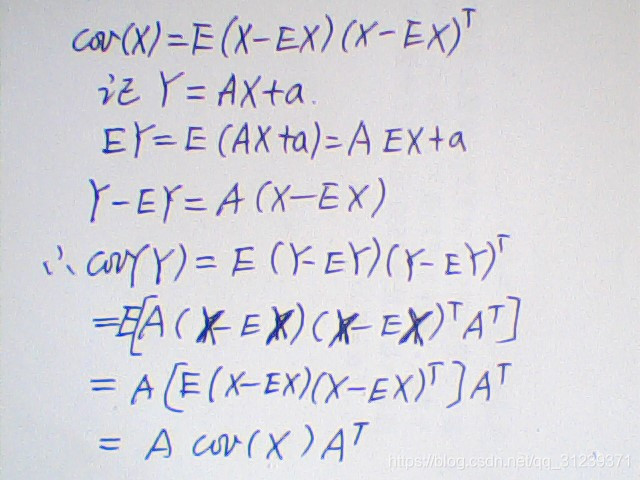 cov(X)=E(X-EX)(X-EX)ᵀ
记 Y=AX+a.
EY=E(AX+a)=A EX+a
Y-EY=A(X-EX)
∴ cov(Y)=E(Y-EY)(Y-EY)ᵀ
=E[A(X-EX)(X-EX)ᵀAᵀ]
=A[E(X-EX)(X-EX)ᵀ]Aᵀ
=A cov(X)Aᵀ
https://blog.csdn.net/qq_31239371